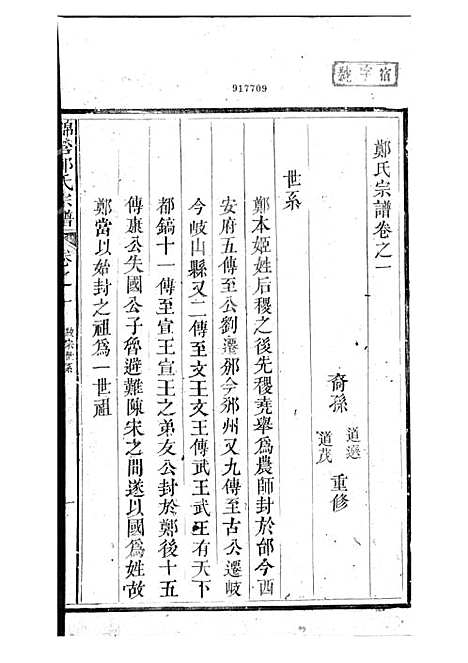 宿字號
917709
鄭氏宗譜卷之一
裔孫 道遜 道茂 重修
世系
鄭本姬姓后稷之後先稷堯舉爲農師封於邰今西
安府五傳至公劉遷邠今邠州又九傳至古公遷岐
今岐山縣又二傳至文王文王傳武王武王有天下
都鎬十一傳至宣王宣王之弟友公封於鄭後十五
傳康公失國公子魯避難陳宋之間遂以國爲姓故
鄭當以始封之祖爲一世祖
鄭氏宗譜
卷之一
世系
一